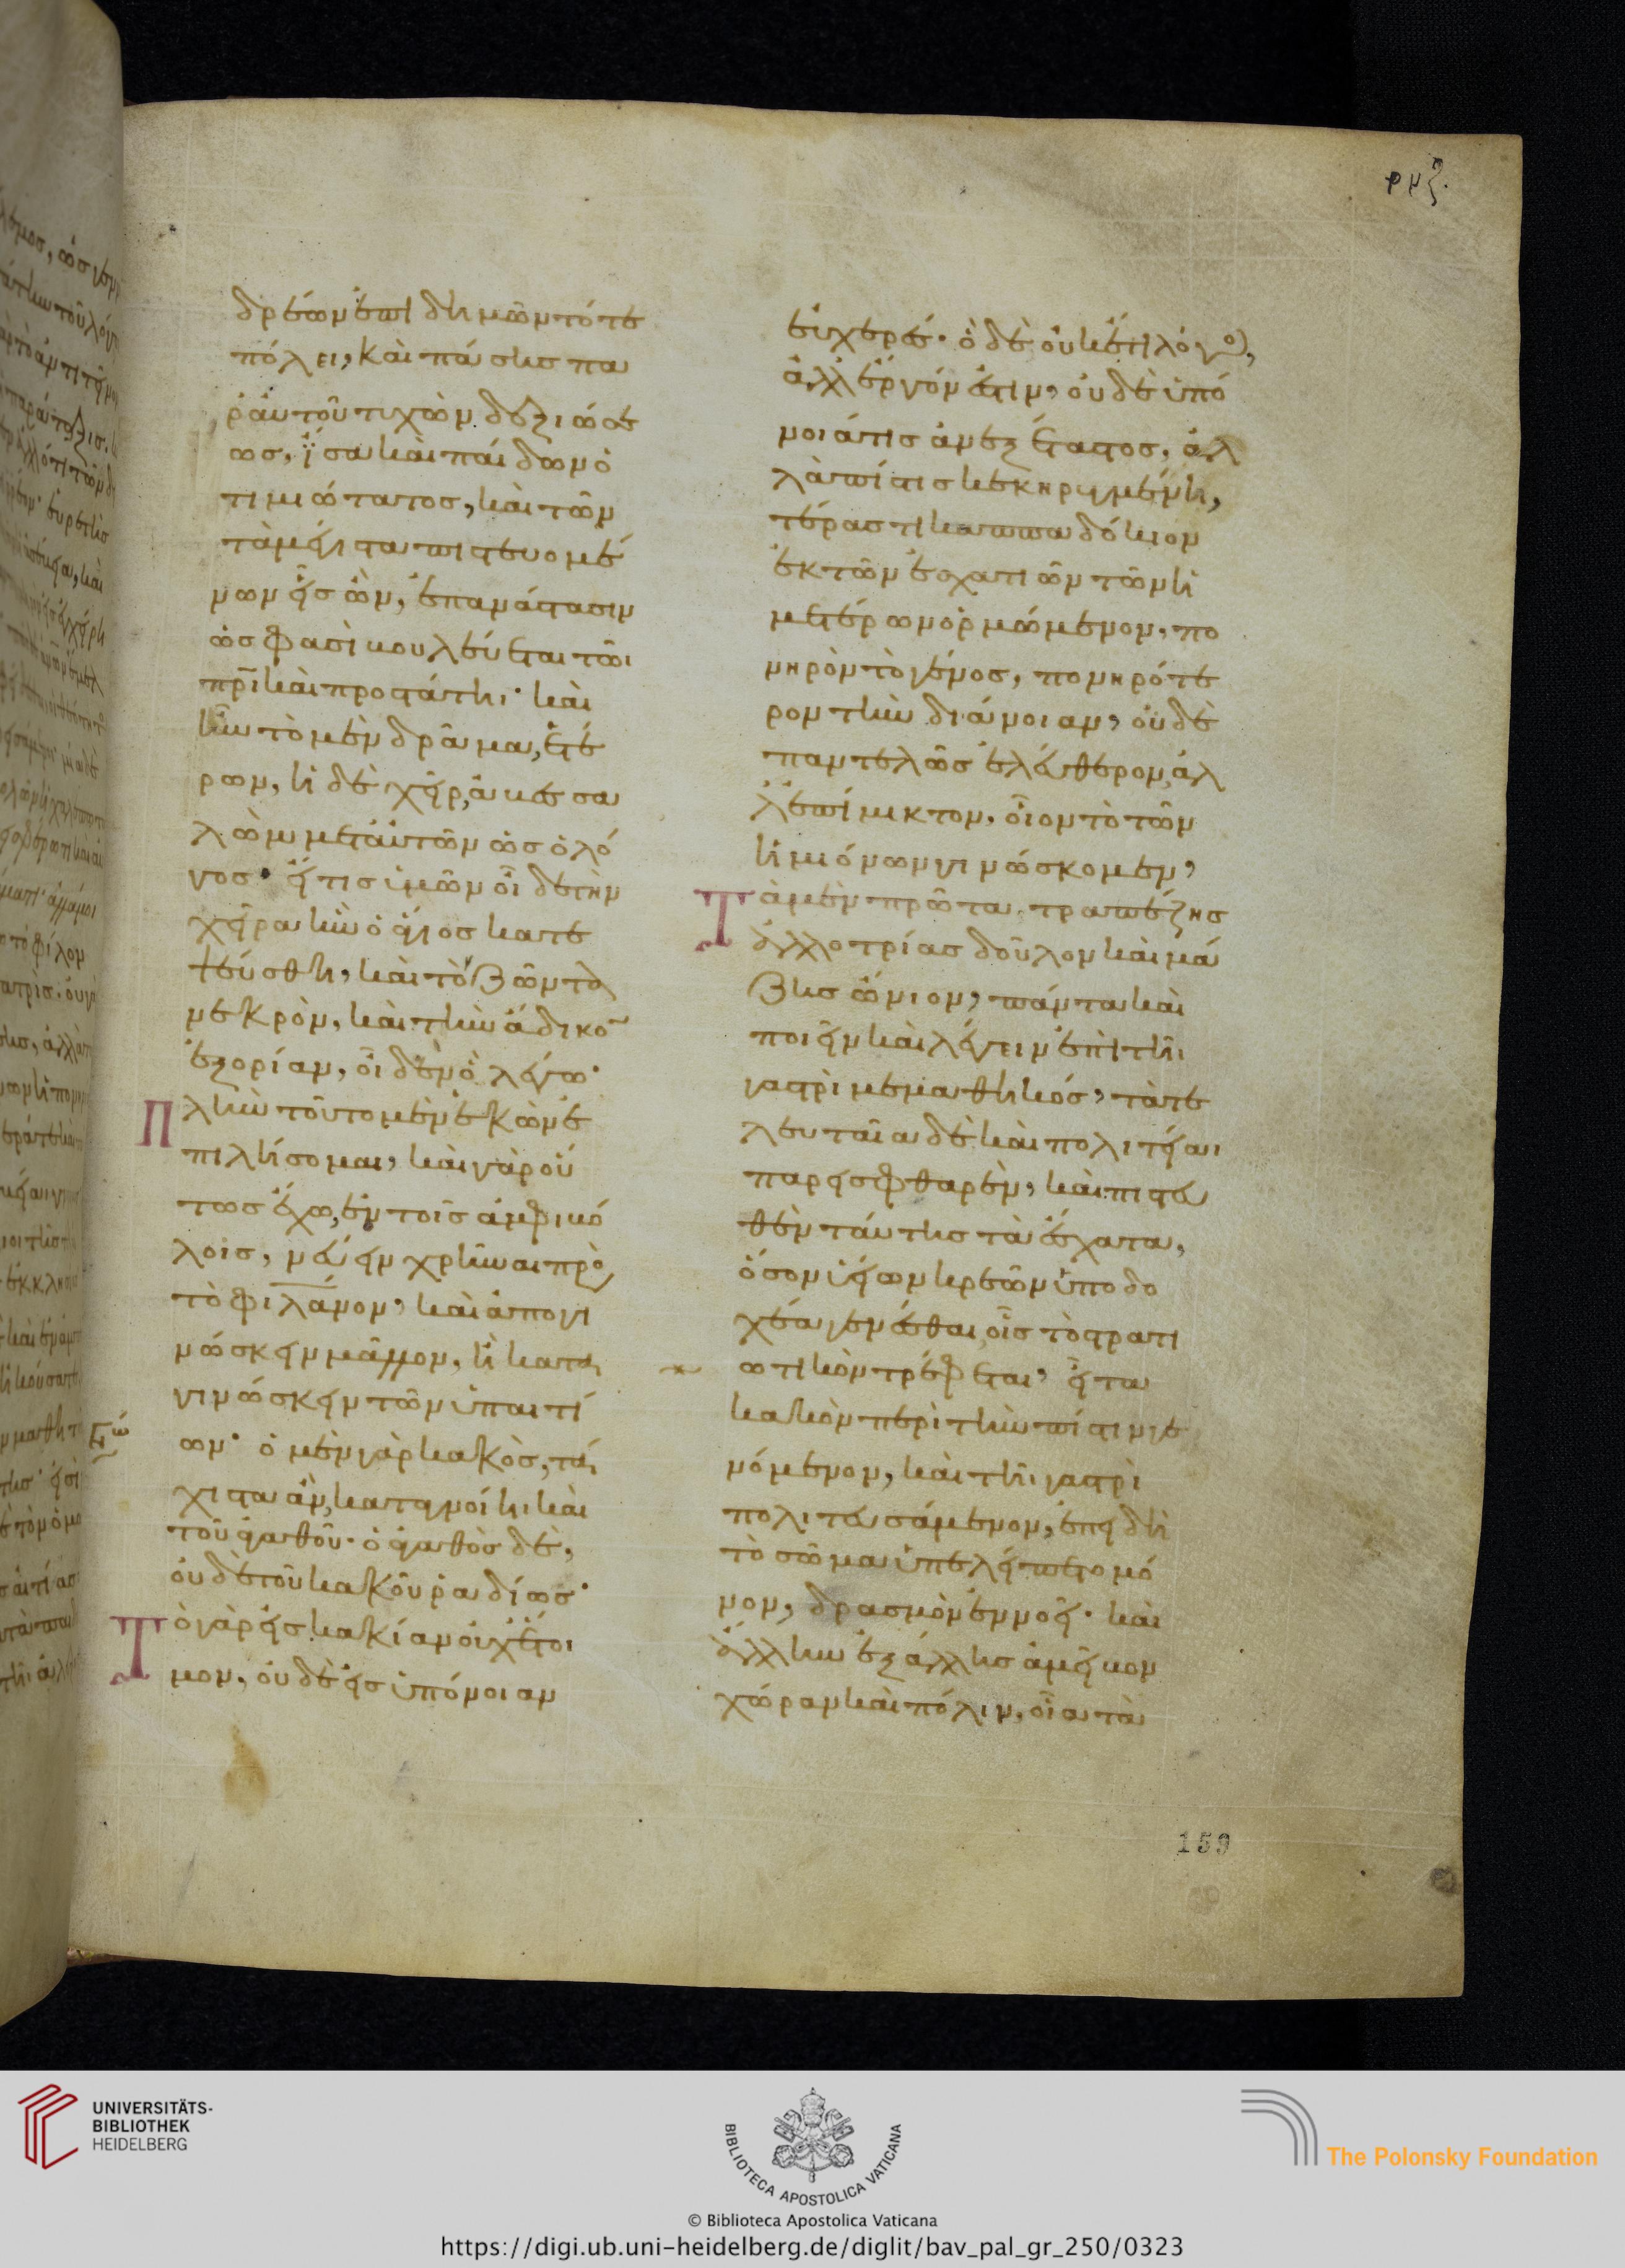 ρνζ.
δρεών ἐπιδημῶν τότε
πόλει, καὶ πάσης πα
ρ᾽ αὐτοῦ τυχὼν δεξιώσε
ως, ἴσα καὶ παίδων ὁ
τιμιώτατος, καὶ τῶν
τὰ μέγιστα πιστευομέ
νων εἷς ὢν, ἐπανάστασιν
ὥς φασὶ βουλεύεται τῶι
πρι καὶ προστάτηι· καὶ
ἦν τὸ μὲν δρᾶμα, ἑτέ
ρων, ἡ δὲ χεὶρ, ἀβεσσα
λὼμ μετ᾽ αὐτῶν ὡς ὁ λό
γος· εἴ τις ὑμῶν οἶδε τὴν
χεῖρα ἣν ὁ ἅγιος κατε
ψεύσθη, καὶ τὸν ζῶντα
νεκρὸν, καὶ τὴν ἄδικον
ἐξορίαν, οἶδεν ὃ λέγω·
Πλὴν τοῦτο μὲν ἑκὼν ἐ
πιλήσομαι, καὶ γὰρ οὕ
τως ἔχω, ἐν τοῖς ἀμφιβό
λοις, νεύειν χρῆναι πρὸς
τὸ φιλάνον, καὶ ἀπογι
νώσκειν μᾶλλον, ἢ κατα
γινώσκειν τῶν ὑπαιτί
ων· ὁ μὲν γὰρ κακὸς, τά
χιστα ἂν καταγνοίη καὶ
τοῦ ἀγαθοῦ· ὁ ἀγαθὸς δὲ,
οὐδὲ τοῦ κακοῦ ῥαδίως·
Τὸ γὰρ εἰς κακίαν οὐχ ἕτοι
μον, οὐδὲ εἰς ὑπόνοιαν
εὐχερές· ὃ δὲ οὐκέτι λόγος,
ἀλλ᾽ ἔργόν ἐστιν, οὐδὲ ὑπό
νοια τὶς ἀνεξέταστος, ἀλ
λὰ πίστις κεκηρυγμένη,
τέρας τι καππαδόκιον
ἐκ τῶν ἐσχατιῶν τῶν ἡ
μετέρων ὁρμώμενον, πο
νηρὸν τὸ γένος, πονηρότε
ρον τὴν διάνοιαν, οὐδὲ
παντελῶς ἐλεύθερον, ἀλ
λ᾽ ἐπίμικτον, οἷον τὸ τῶν
ἡμιόνων γινώσκομεν,
Τὰ μὲν πρῶτα, τραπέζης
ἀλλοτρίας δοῦλον καὶ μά
ζης ὤνιον, πάντα καὶ
ποιεῖν καὶ λέγειν ἐπὶ τῆι
γαστρὶ μεμαθηκός, τὰ τε
λευταῖα δὲ καὶ πολιτείαι
παρεισφθαρὲν, καὶ πιστευ
θὲν ταύτης τὰ ἔσχατα,
ὅσον ὑείων κρεῶν ὑποδο
χέα γενέσθαι, οἷς τὸ στρατι
ωτικὸν τρέφεται, εἶτα
κακὸν περὶ τὴν πίστιν γε
νόμενον, καὶ τῆι γαστρὶ
πολιτευσάμενον, ἐπειδὴ
τὸ σῶμα ὑπελείπετο μό
νον, δρασμὸν ἐννοεῖ· καὶ
ἄλλην ἐξ ἄλλης ἀμεῖβον
χώραν καὶ πόλιν, οἷα τὰ
159
UNIVERSITÄTS-
BIBLIOTHEK
HEIDELBERG
BIBLIOTECA APOSTOLICA VATICANA
The Polonsky Foundation
© Biblioteca Apostolica Vaticana
https://digi.ub.uni-heidelberg.de/diglit/bav_pal_gr_250/0323